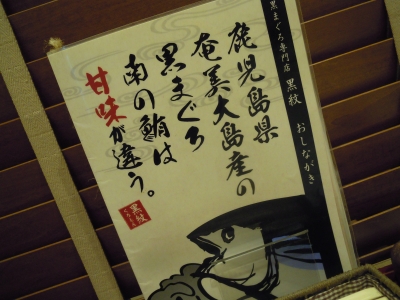 黒まぐろ専門店 黒紋 おしながき
鹿児島県
奄美大島産の
黒まぐろ
南の鮪は
甘味が違う。
黒紋